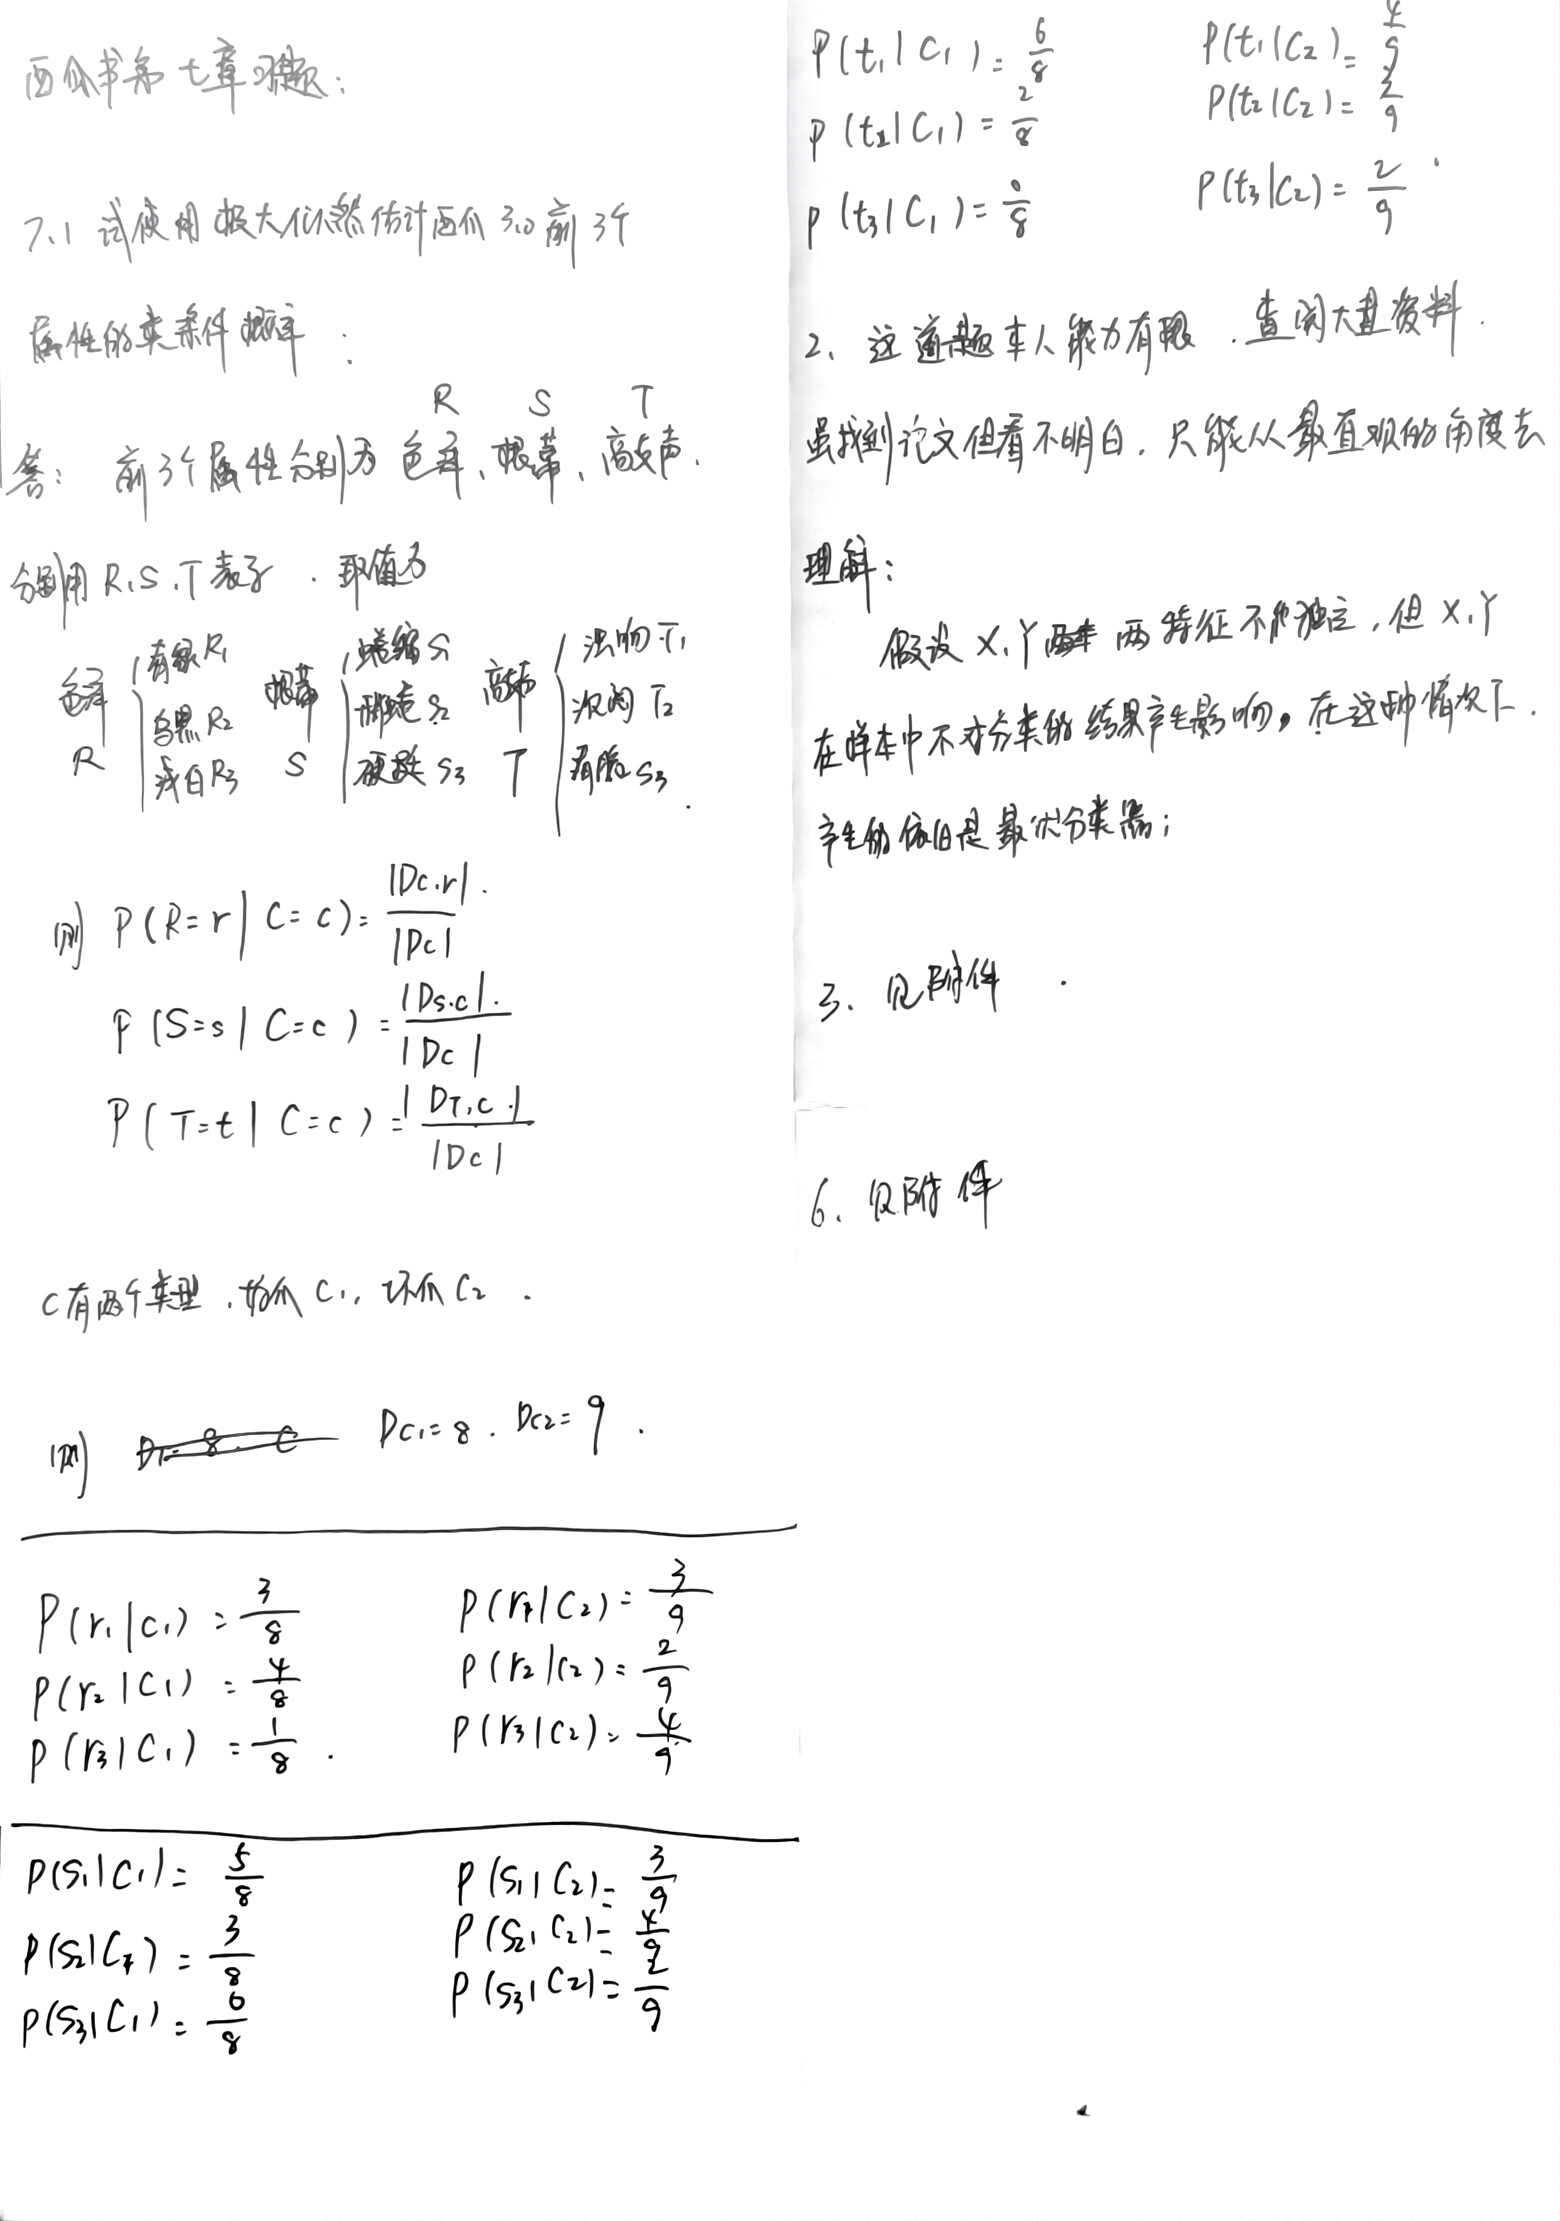 西瓜书第七章习题：
7.1 试使用极大似然估计西瓜3.0前3个
属性的类条件概率：
R S T
答：前3个属性分别为色泽、根蒂、敲声.
分别用R、S、T表示．取值为
色泽 R 青绿R1 乌黑R2 浅白R3
根蒂 S 蜷缩S1 稍蜷S2 硬挺S3
敲声 T 浊响T1 沉闷T2 清脆S3.
则 P(R=r|C=c)=|Dc.r|/|Dc|
P(S=s|C=c)=|Ds.c|/|Dc|
P(T=t|C=c)=|DT,c|/|Dc|
C有两个类型，好瓜C1，坏瓜C2．
则 Dc1=8．Dc2=9．
P(r1|c1)=3/8 P(r1|C2)=3/9
P(r2|C1)=4/8 P(r2|C2)=2/9
P(r3|C1)=1/8． P(r3|C2)=4/9
P(S1|C1)=5/8 P(S1|C2)=3/9
P(S2|C1)=3/8 P(S2|C2)=4/9
P(S3|C1)=0/8 P(S3|C2)=2/9
P(t1|C1)=6/8 P(t1|C2)=4/9
P(t2|C1)=2/8 P(t2|C2)=3/9
P(t3|C1)=0/8 P(t3|C2)=2/9．
2、这道题本人能力有限．查阅大量资料．
虽找到论文但看不明白，只能从最直观的角度去
理解：
假设X,Y两特征不独立，但X,Y
在样本中不对分类的结果产生影响，在这种情况下．
产生的依旧是最优分类器；
3、见附件．
6、见附件